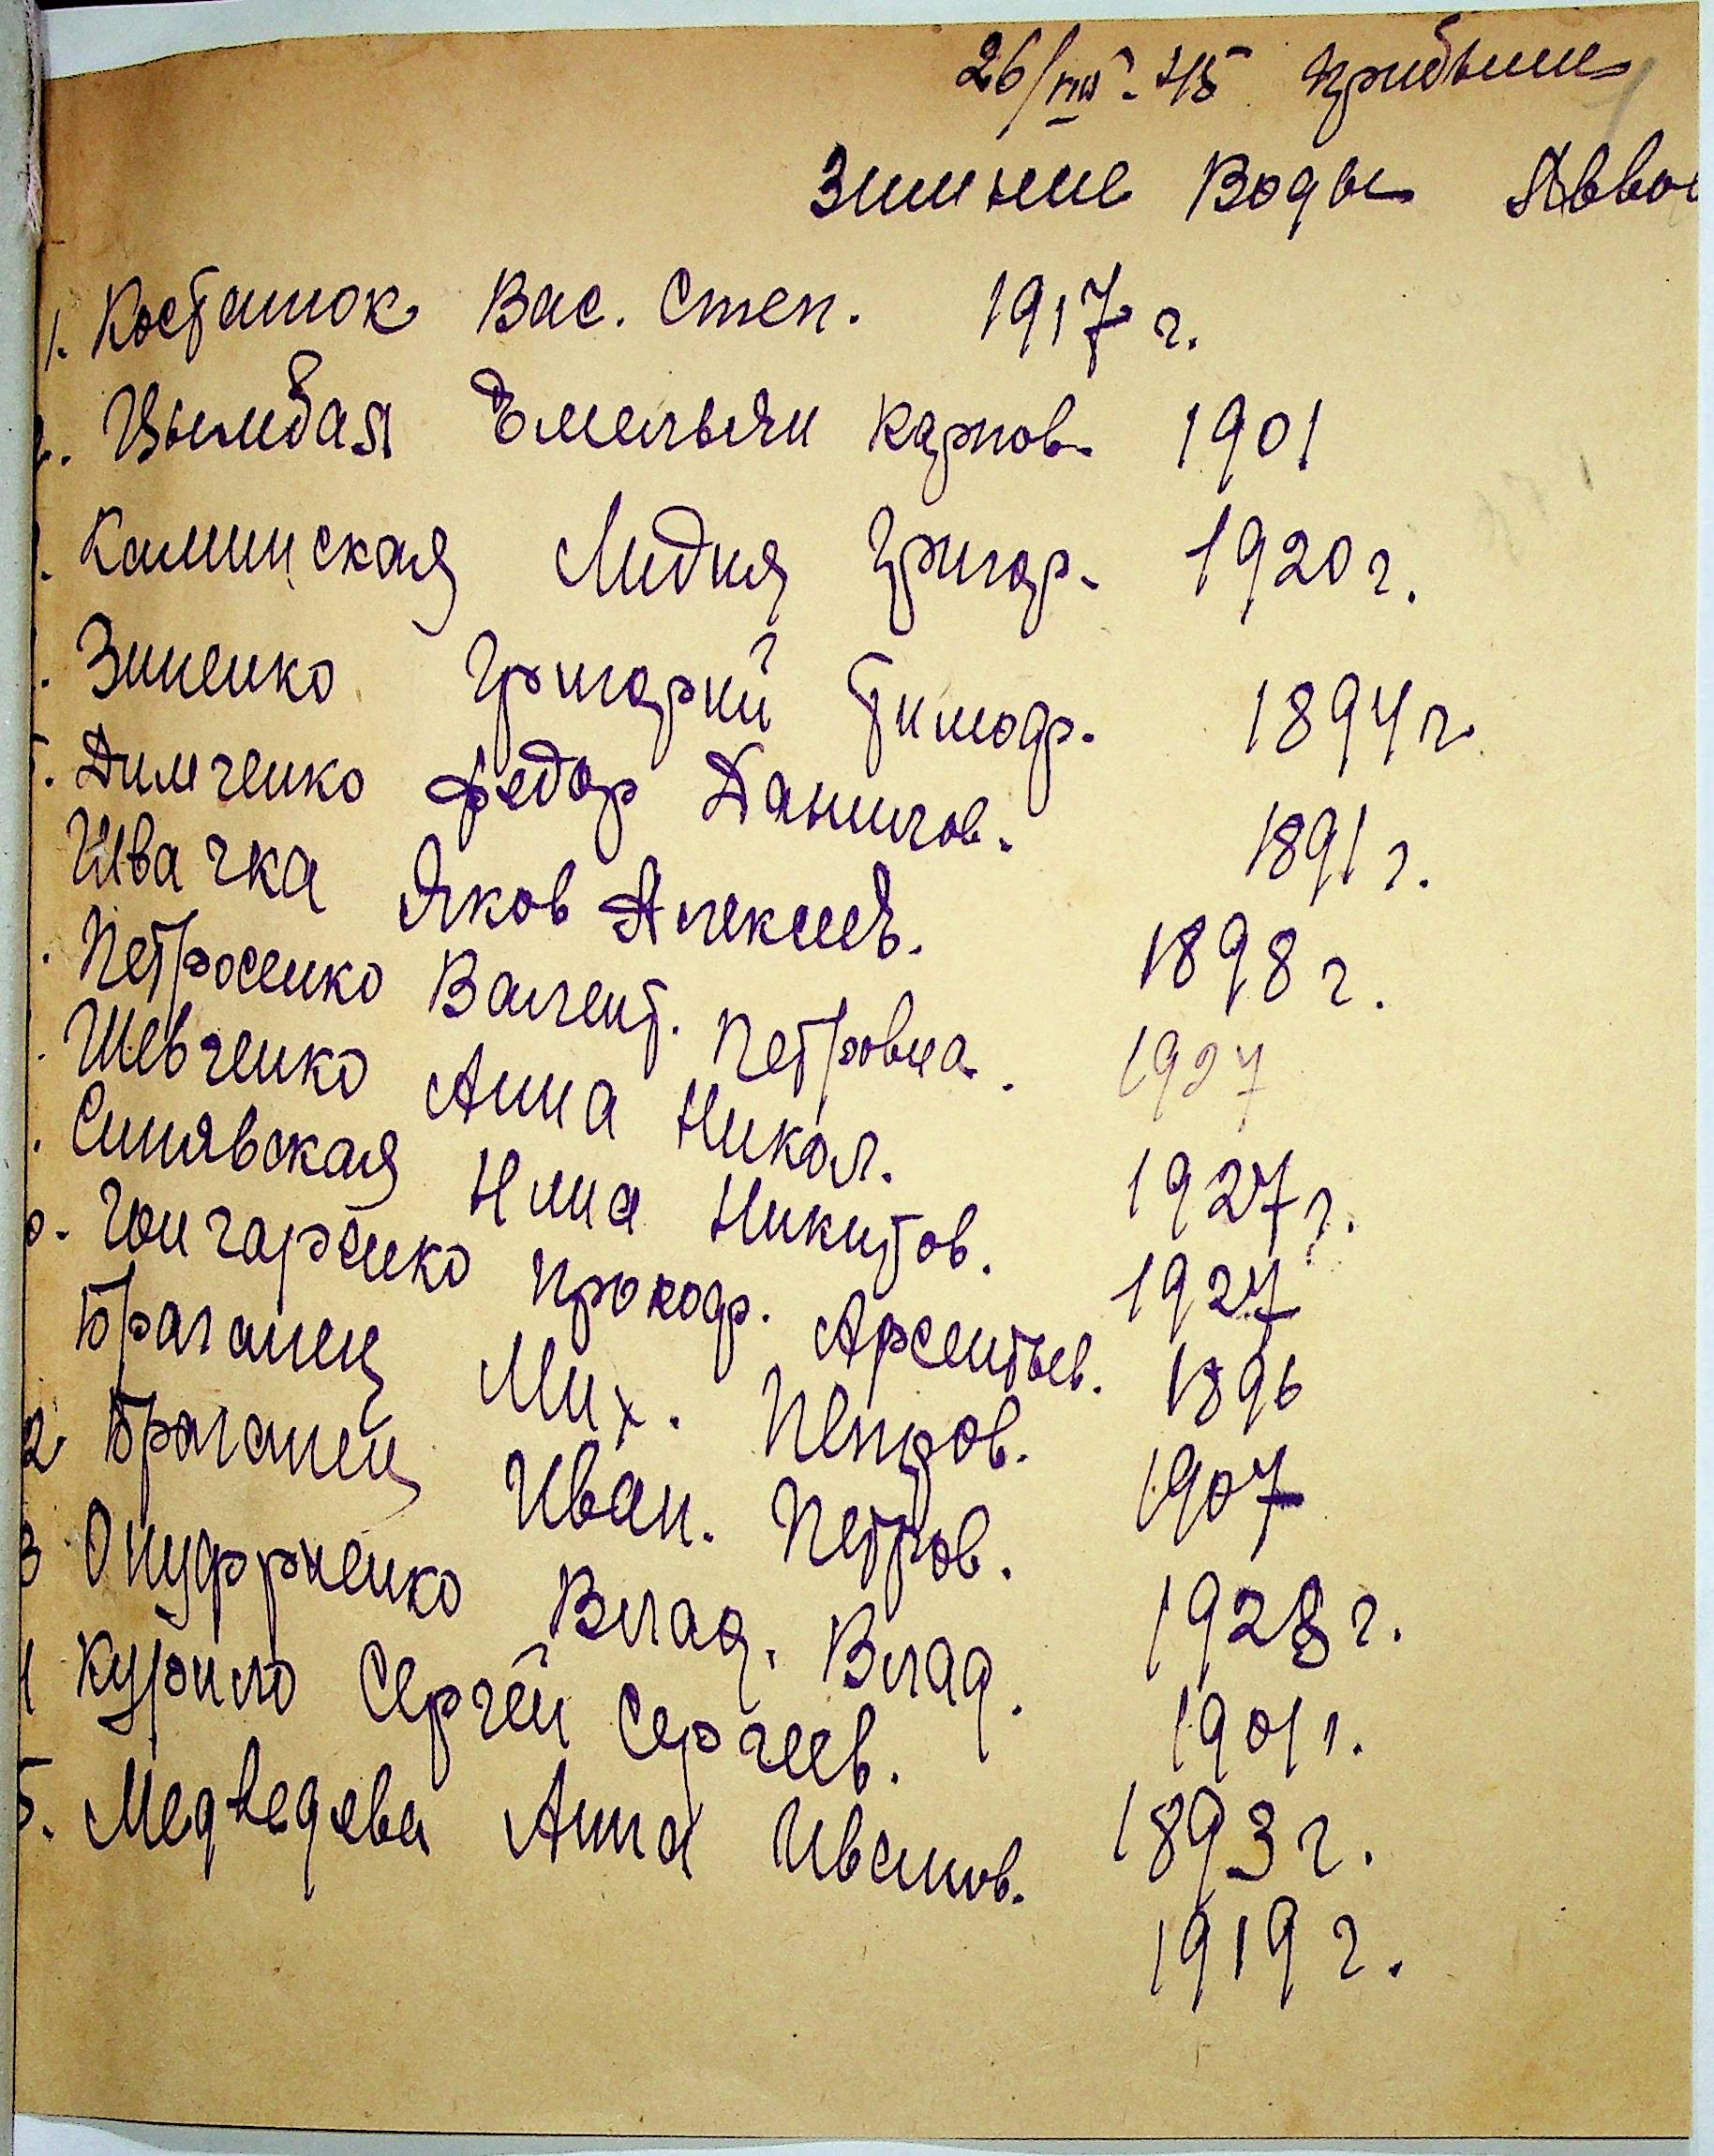 26/VIII-45 прибыли
Зимние Воды
1. Костанюк Вас. Степ. 1917 г.
2. Цымбал Емельян Карпов. 1901
Калинская Лидия Григор. 1920 г.
Зиненко Григорий Тимоф. 1894 г.
5. Димченко Федор Данилов. 1891 г.
Ивачка Яков Алексеев. 1898 г.
Петросенко Валент. Петровна. 1927
Шевченко Анна Никол. 1927 г.
Синявская Нина Никитов. 1927
0. Гончаренко Прокоф. Арсентьев. 1896
Браганец Мих. Петров. 1907
2 Браганец Иван. Петров. 1928 г.
3 Онуфриенко Влад. Влад. 1901 г.
4 Курило Сергей Сергеев. 1893 г.
5. Медведева Анна Иванов. 1919 г.